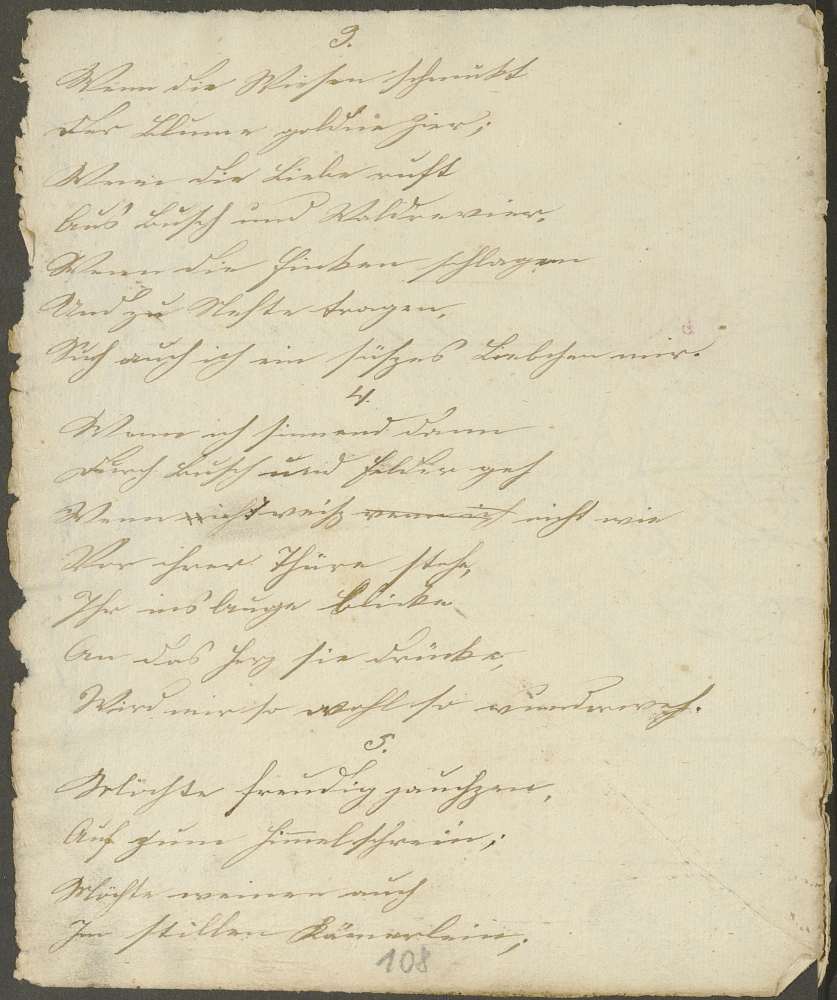 3.
Wenn die Wiesen schmükt
Der Blume goldne Zier;
Wenn die Liebe ruft
Aus Busch und Waldrevier,
Wenn die Finken schlagen
Und zu Neste tragen,
Such auch ich ein süßes Liebchen mir.
4.
Wenn ich sinnend dann
Durch Busch und Felder geh
Wenn nicht weiß wenn ich nicht wie
Vor ihrer Thüre steh,
Ihr ins Auge blicke
An das Herz sie drücke,
Wird mir so wohl so wunderweh.
5.
Möchte freudig jauchzen,
Auf zum Himmelschrein;
Möchte weinen auch
Im stillen Kämerlein;
108